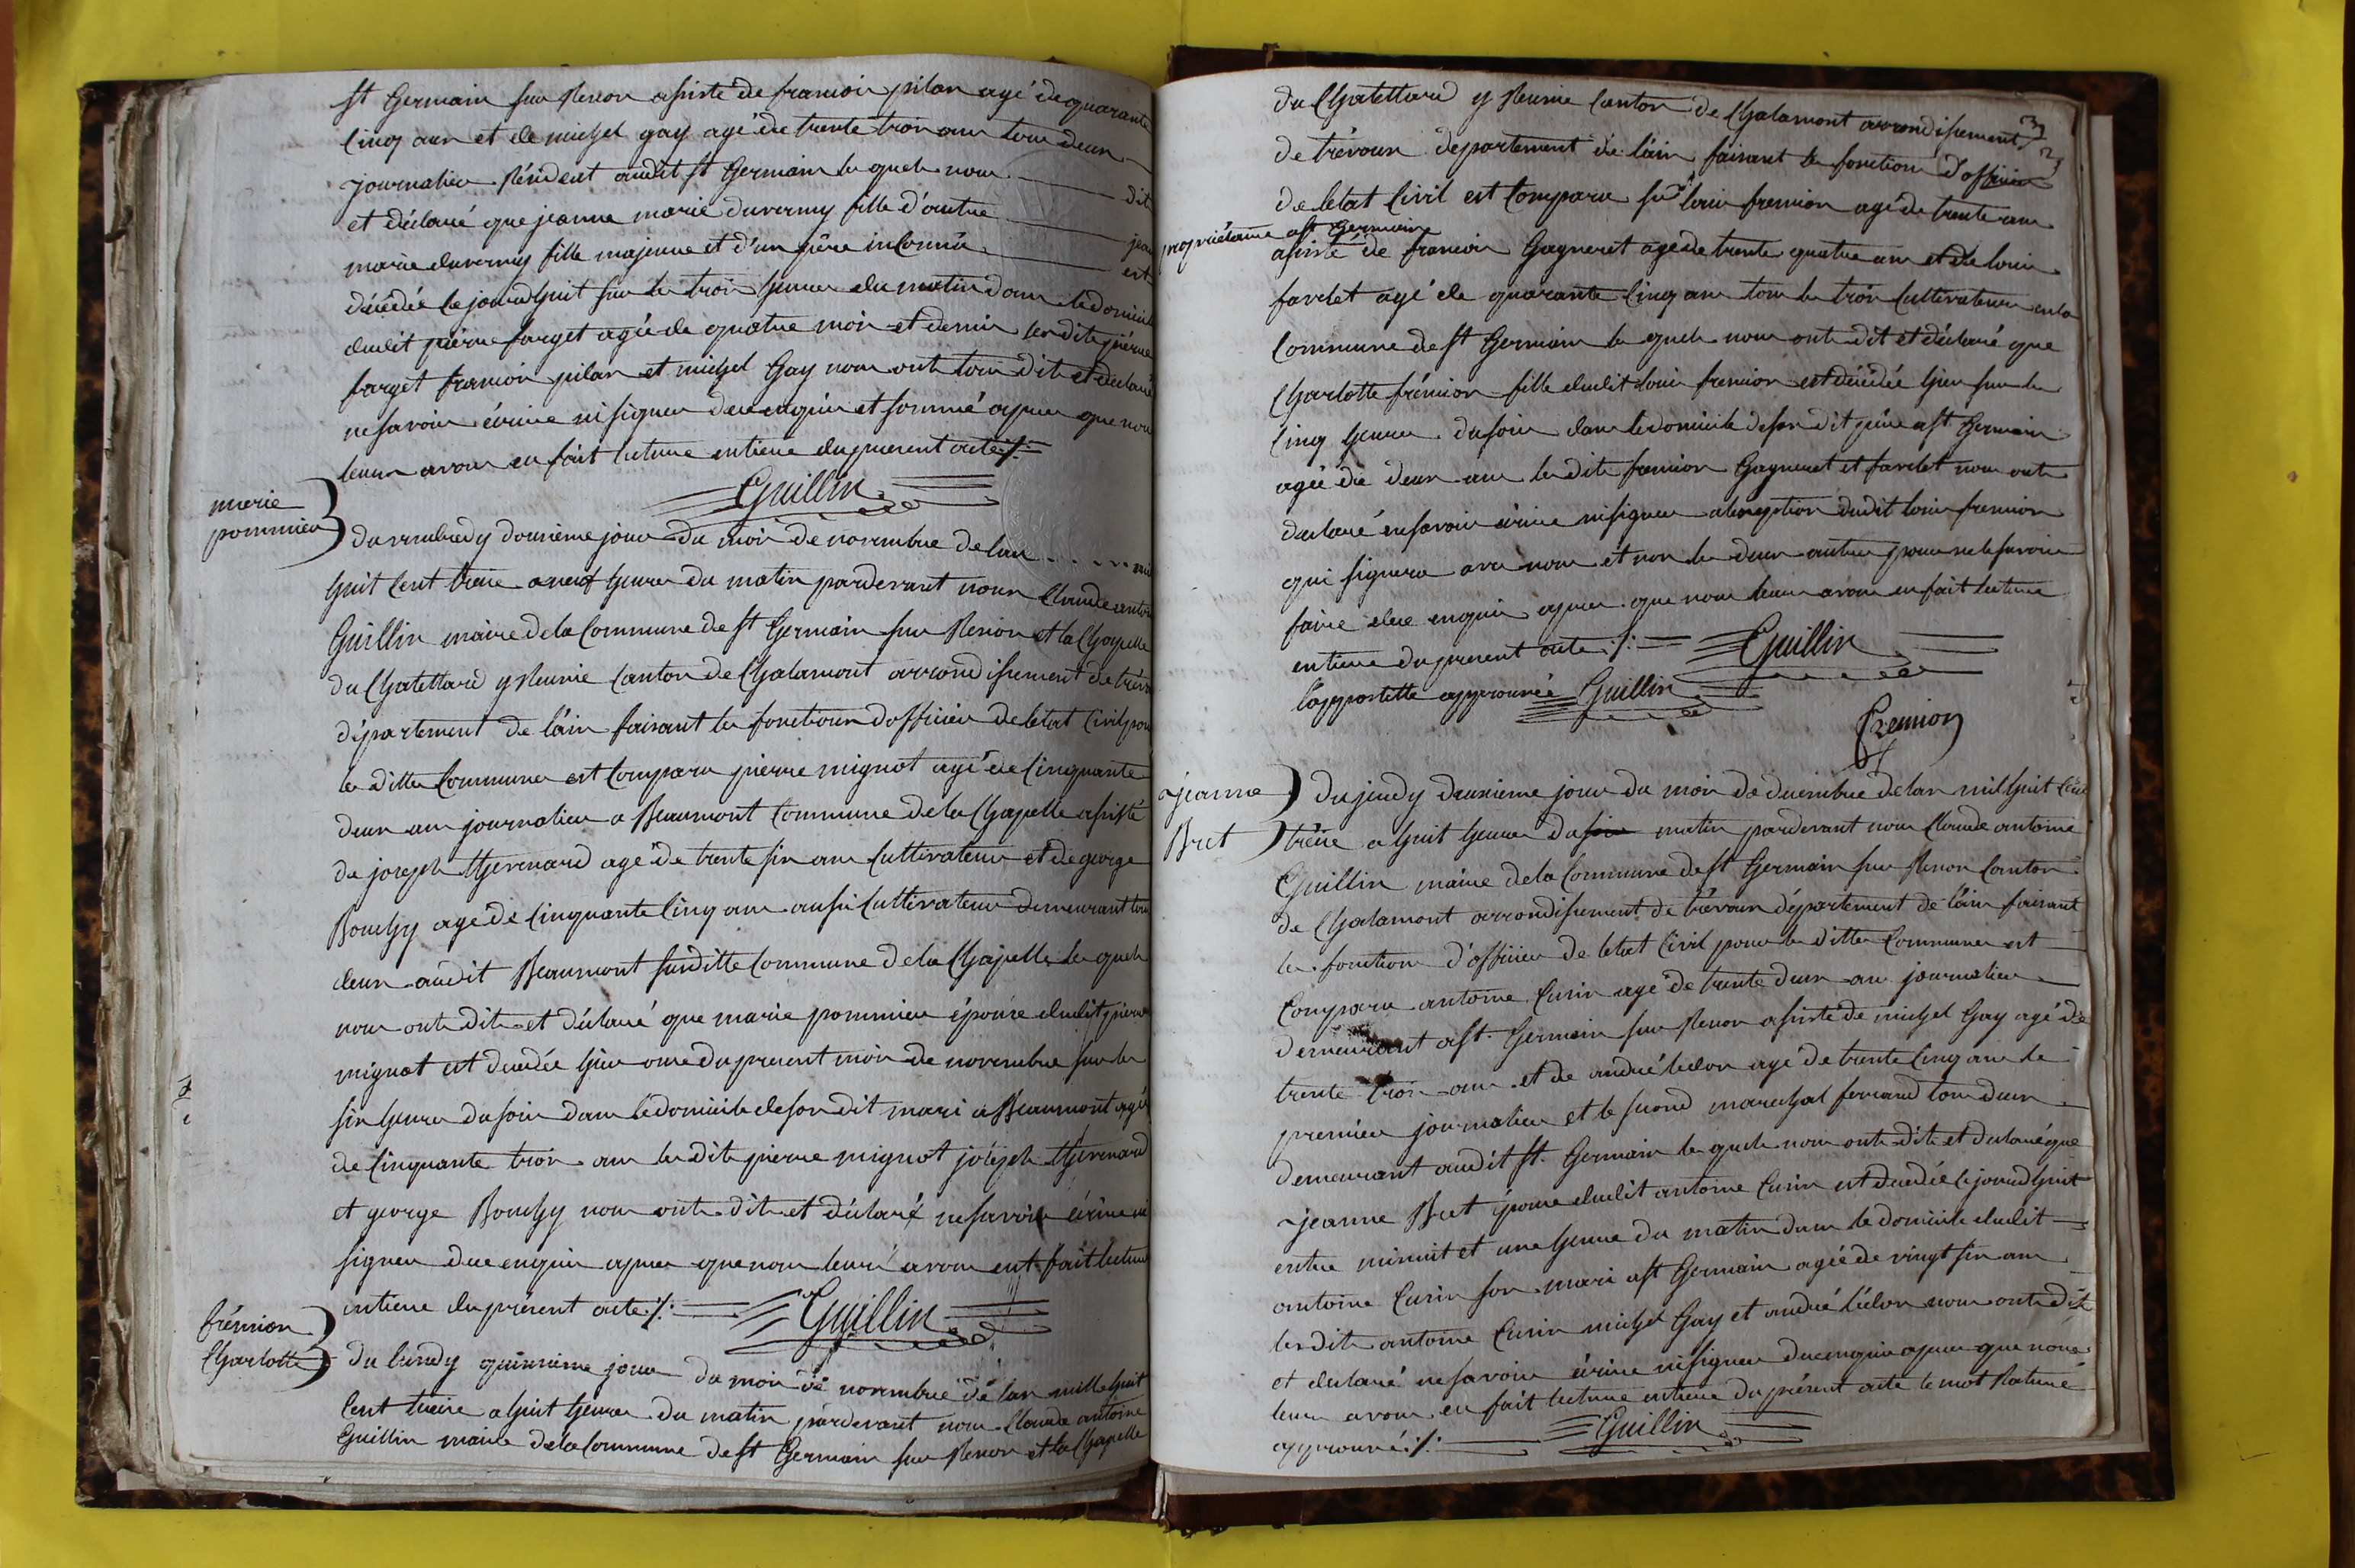 st Germain sur Renon assisté de francois pilon agé de quarante
cinq ans et de michel gay agé de trente trois ans tous deux
journalier Résident audit st Germain les quels nous dit
et déclaré que jeanne marie duverney fille d'autre jean
marie duverney fille majeure et d'un père inconnu est
décédée le jourd'huit sur les trois heures du matin dans le domicile
dudit pierre farget agée de quatre mois et demis les dits pierre
farget francois pilon et michel Gay nous ont tous dit et déclaré
ne savoir écrire ni signer de ce enquis et sommé apres que nous
leurs avons eu fait lecture entiere du present acte ./.
Guillin
marie
pommier
du vendredy douzième jour du mois de novembre de lan mil
huit cent treize a neuf heures du matin pardevant nous Claude antoine
Guillin maire de la Commune de st Germain sur Renon et la Chapelle
du Chatellard y Reunie Canton de Chalamont arrondissement de trévoux
département de l'ain faisant les fonctions d'officier de letat Civil pour
les dittes Communes est Comparu pierre mignot agé de cinquante
deux ans journalier a Beaumont Commune de la Chapelle assisté
de joseph thevenard agé de trente six ans Cultivateur et de george
Bouchy agé de Cinquante Cinq ans aussi Cultivateur demeurant tous
deux audit Beaumont susditte Commune de la Chapelle les quels
nous ont dit et déclaré que marie pommier épouse dudit pierre
mignot est decedée hier onze du present mois de novembre sur les
six heures du soir dans le domicile de son dit mari a Beaumont agée
de cinquante trois ans les dits pierre mignot joseph thevenard
et george Bouchy nous ont dit et déclaré ne savoir écrire ni
signer de ce enquis apres que nous leurs avons eut fait lecture
entiere du présent acte ./.
Guillin
frémion
Charlotte
du lundy quinzieme jour du mois de novembre de lan mille huit
Cent treize a huit heures du matin pardevant nous Claude antoine
Guillin maire de la Commune de st Germain sur Renon et la Chapelle
du Chatellard y Reunie Canton de Chalamont arrondissement
de trévoux departement de l'ain faisant les fonctions d'officier
de letat Civil est Comparu sr louis fremion agé de trente ans
propriétaire a st Germain
assisté de francois Gagneret agé de trente quatre ans et de louis
fardet agé de quarante Cinq ans tous les trois Cultivateurs en la
Commune de st Germain les quels nous ont dit et déclaré que
Charlotte frémion fille dudit louis fremion est décédée hier sur les
Cinq heures du soir dans le domicile de son dit père a st Germain
agée de deux ans les dits fremion Gagneret et fardet nous ont
declaré ne savoir écrire ni signer a lexeption dudit louis fremion
qui signera avec nous et non les deux autres pour ne le savoir
faire de ce enquis apres que nous leurs avons eu fait lecture
entiere du present acte ./.
Guillin
l'appostille approuvée Guillin
Fremion
jeanne
Bret
du jeudy deuxième jour du mois de decembre de lan mil huit Cent
treize a huit heures du soir matin pardevant nous Claude antoine
Guillin maire de la Commune de st Germain sur Renon Canton
de Chalamont arrondissement de trévoux département de l'ain faisant
les fonctions d'officier de letat Civil pour les dittes Communes est
Comparu antoine Cusin agé de trente deux ans journalier
demeurant a st Germain sur Renon assisté de michel Gay agé de
trente trois ans et de andré leelon agé de trente Cinq ans le
premier journalier et le second marechal ferrand tous deux
demeurant audit st Germain les quels nous ont dit et declaré que
jeanne Bret épouse dudit antoine Cusin est decedée le jourd'huit
entre minuit et une heure du matin dans le domicile dudit
antoine Cusin son mari a st Germain agée de vingt six ans
les dits antoine Cusin michel Gay et andré leelon nous ont dit
et declaré ne savoir écrire ni signer de ce enquis apres que nous
leurs avons eu fait lecture entiere du présent acte le mot Raturé
approuvé ./.
Guillin